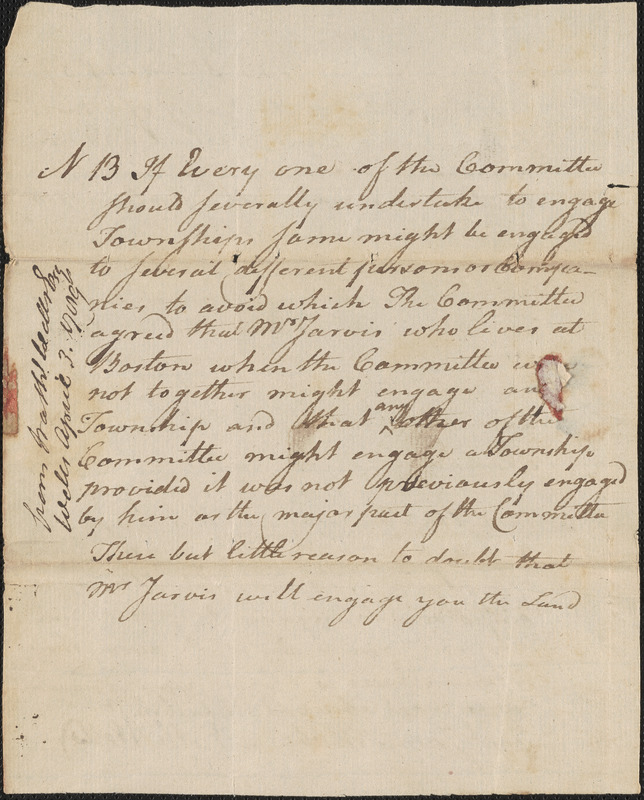 N B If Every one of the Committee
should severally undertake to engage
Townships some might be engaged
to several different persons or Compa-
nies to avoid which The Committee
agreed that Mr Jarvis who lives at
Boston when the Committee were
not together might engage any
Township and that any other of the
Committee might engage a Township
provided it was not previously engaged
by him or the major part of the Committee
There but little reason to doubt that
Mr Jarvis will engage you the Land
from Nathl
Wells April 3.